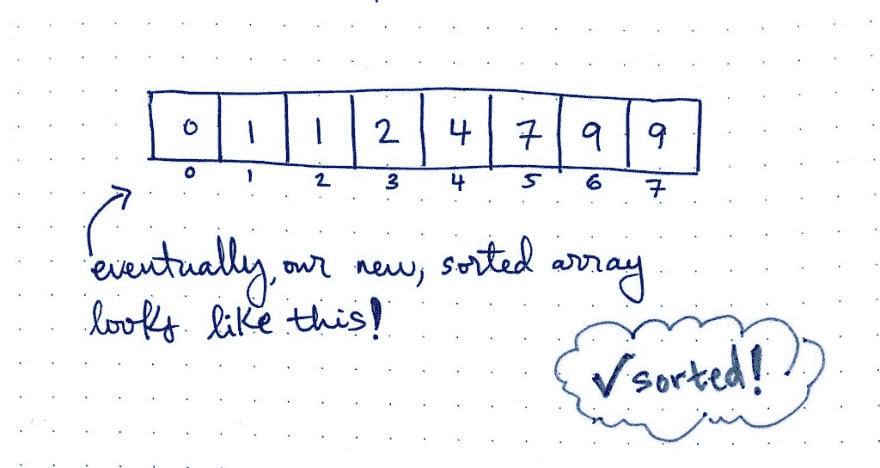 0 1 1 2 4 7 9 9
0 1 2 3 4 5 6 7
eventually, our new, sorted array
looks like this!
✓sorted!